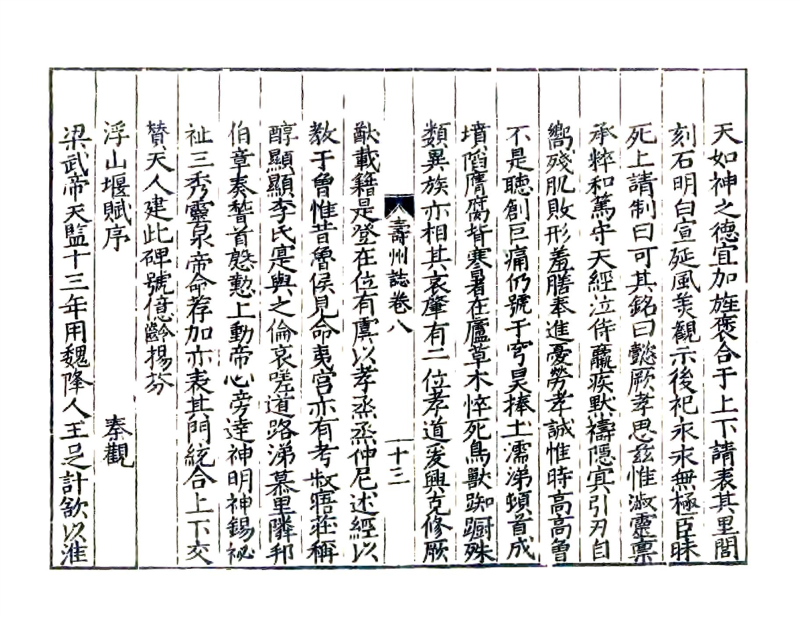 天如神之德宜加旌褒合于上下請表其里閭
刻石明白宣延風美觀示後祀永永無極臣昧
死上請制曰可其銘曰懿厥孝思兹惟淑靈稟
承粹和篤守天經泣侍羸疾默禱隱冥引刃自
嚮殘肌敗形羞膳奉進憂勞孝誠惟時高高曾
不是聽創巨痛仍號于穹昊捧土濡涕頓首成
墳陷膺腐眥寒暑在廬草木悴死鳥獸踟躕殊
類異族亦相其哀肇有二位孝道爰興克修厥
壽州誌卷八 十三
猷載籍是登在位有虞以孝烝烝仲尼述經以
教于魯惟昔魯侯見命夷宮亦有考叔寤莊稱
醇顯顯李氏寔與之倫哀嗟道路涕慕里隣邦
伯章奏稽首慇懃上動帝心旁達神明神錫祕
祉三秀靈泉帝命荐加亦表其門統合上下交
贊天人建此碑號億齡揚芬
浮山堰賦序 秦觀
梁武帝天監十三年用魏降人王足計欲以淮